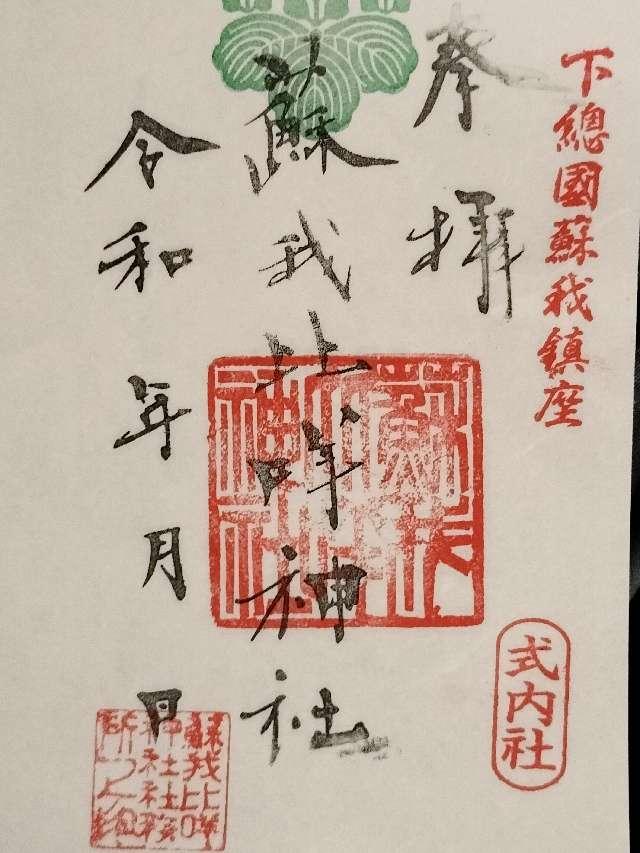 下總國蘇我鎮座
式内社
奉拝
蘇我比咩神社
令和 年 月 日
蘇我比咩
神社社務
所之印